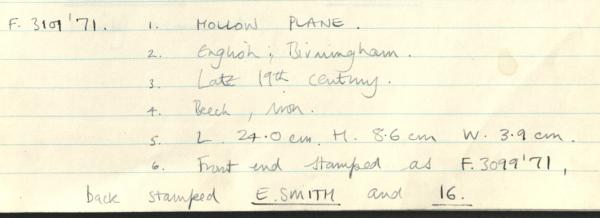 F. 3101'71. 1. HOLLOW PLANE.
2. English; Birmingham.
3. Late 19th century.
4. Beech, iron.
5. L. 24.0 cm. H. 8.6 cm W. 3.9 cm.
6. Front end stamped as F.3099'71,
back stamped E.SMITH and 16.